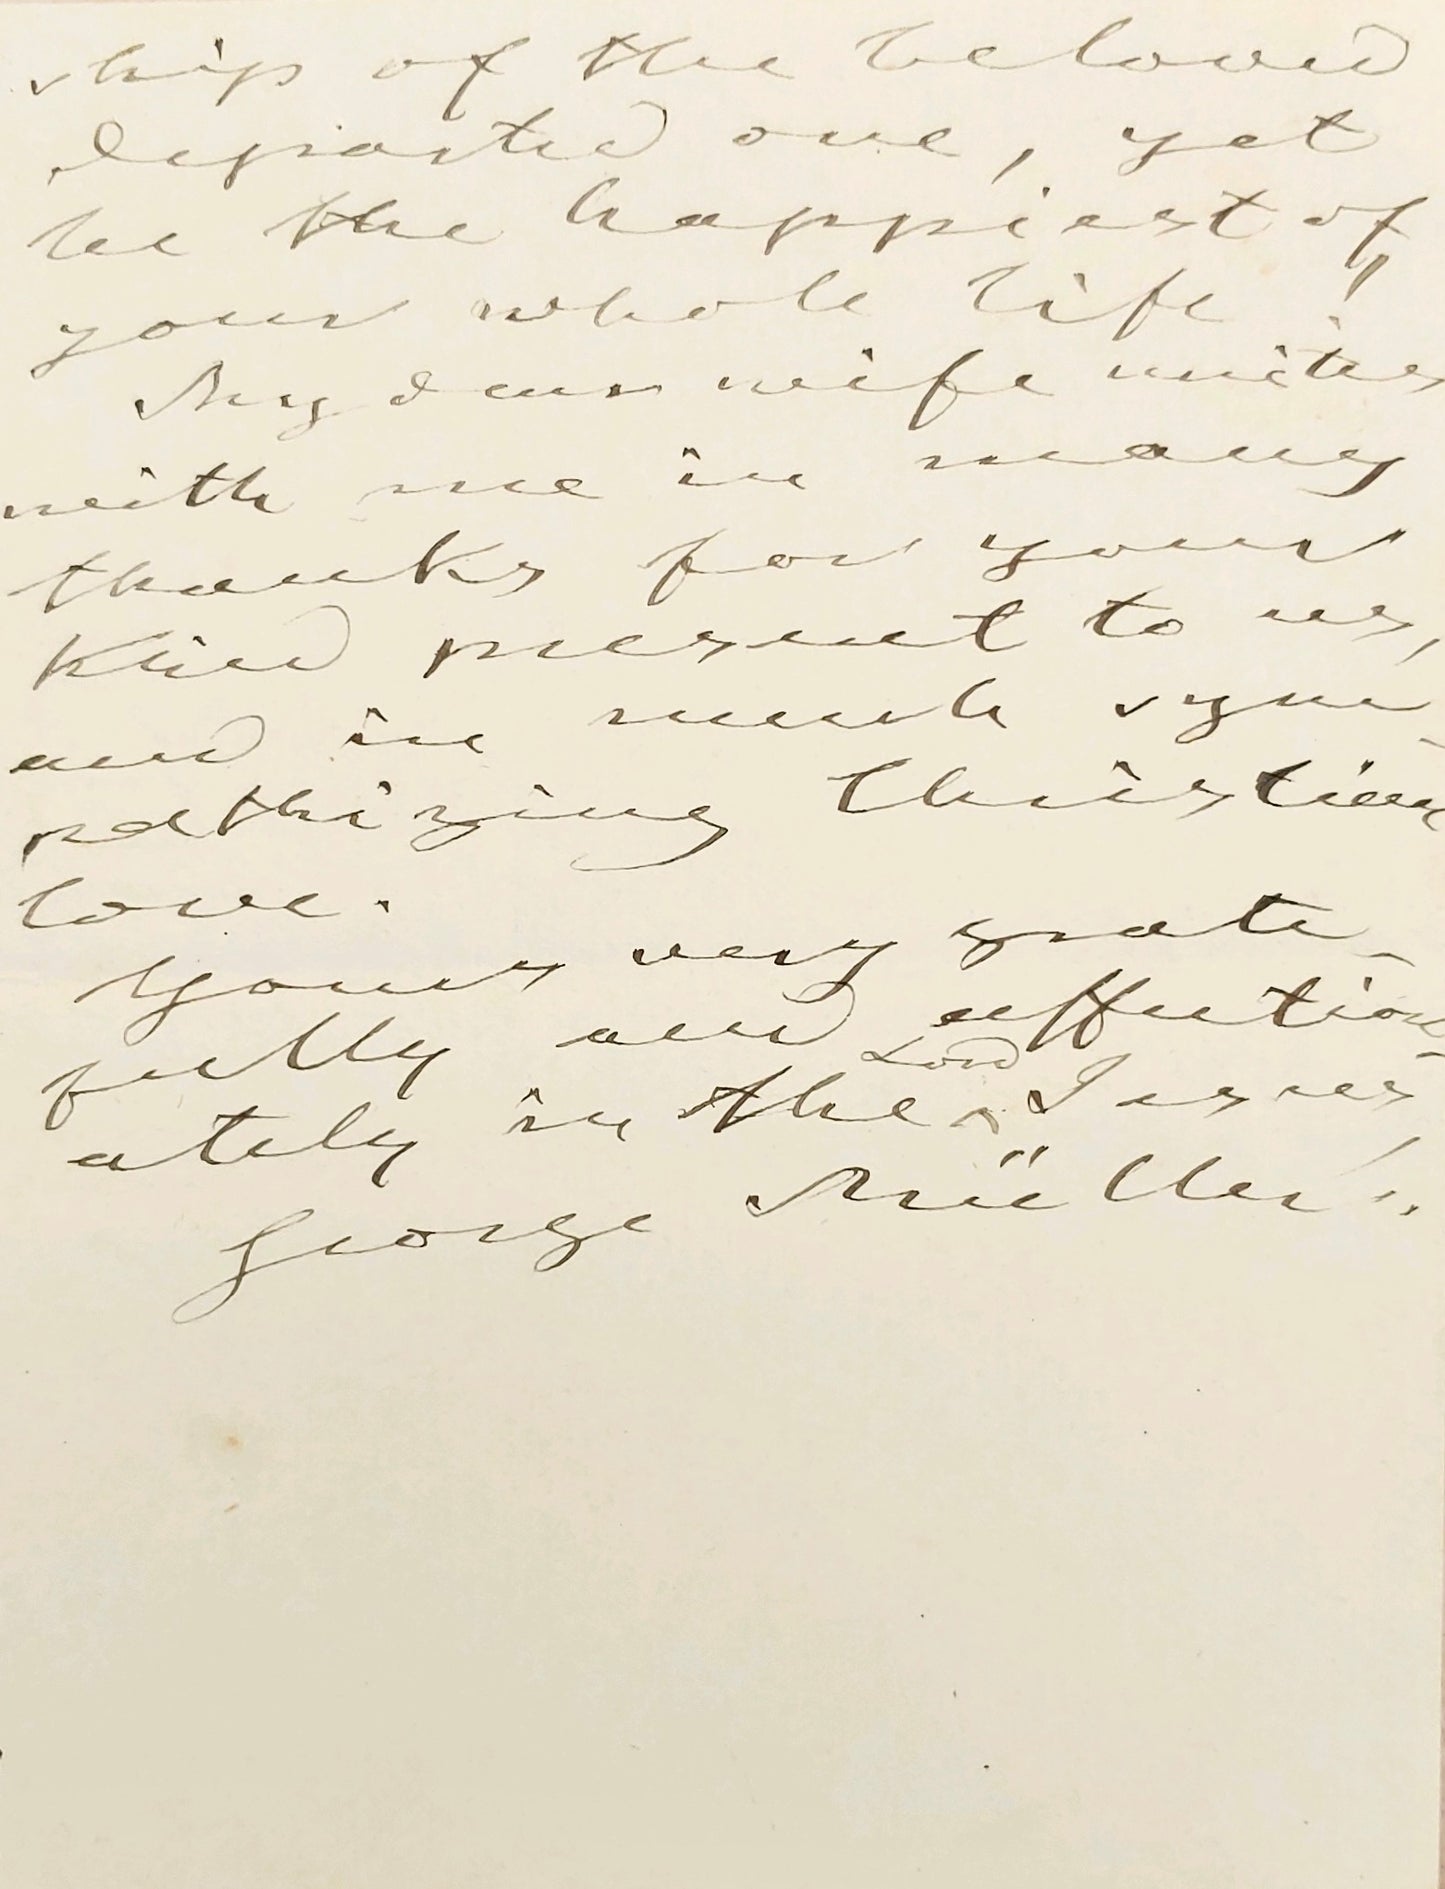 ship of the beloved
departed one, yet
be the happiest of
your whole life!
My dear wife unites
with me in many
thanks for your
kind present to us,
and in much sym-
pathizing Christian
love.
Yours very grate-
fully and affection-
ately in the Lord Jesus
George Müller.